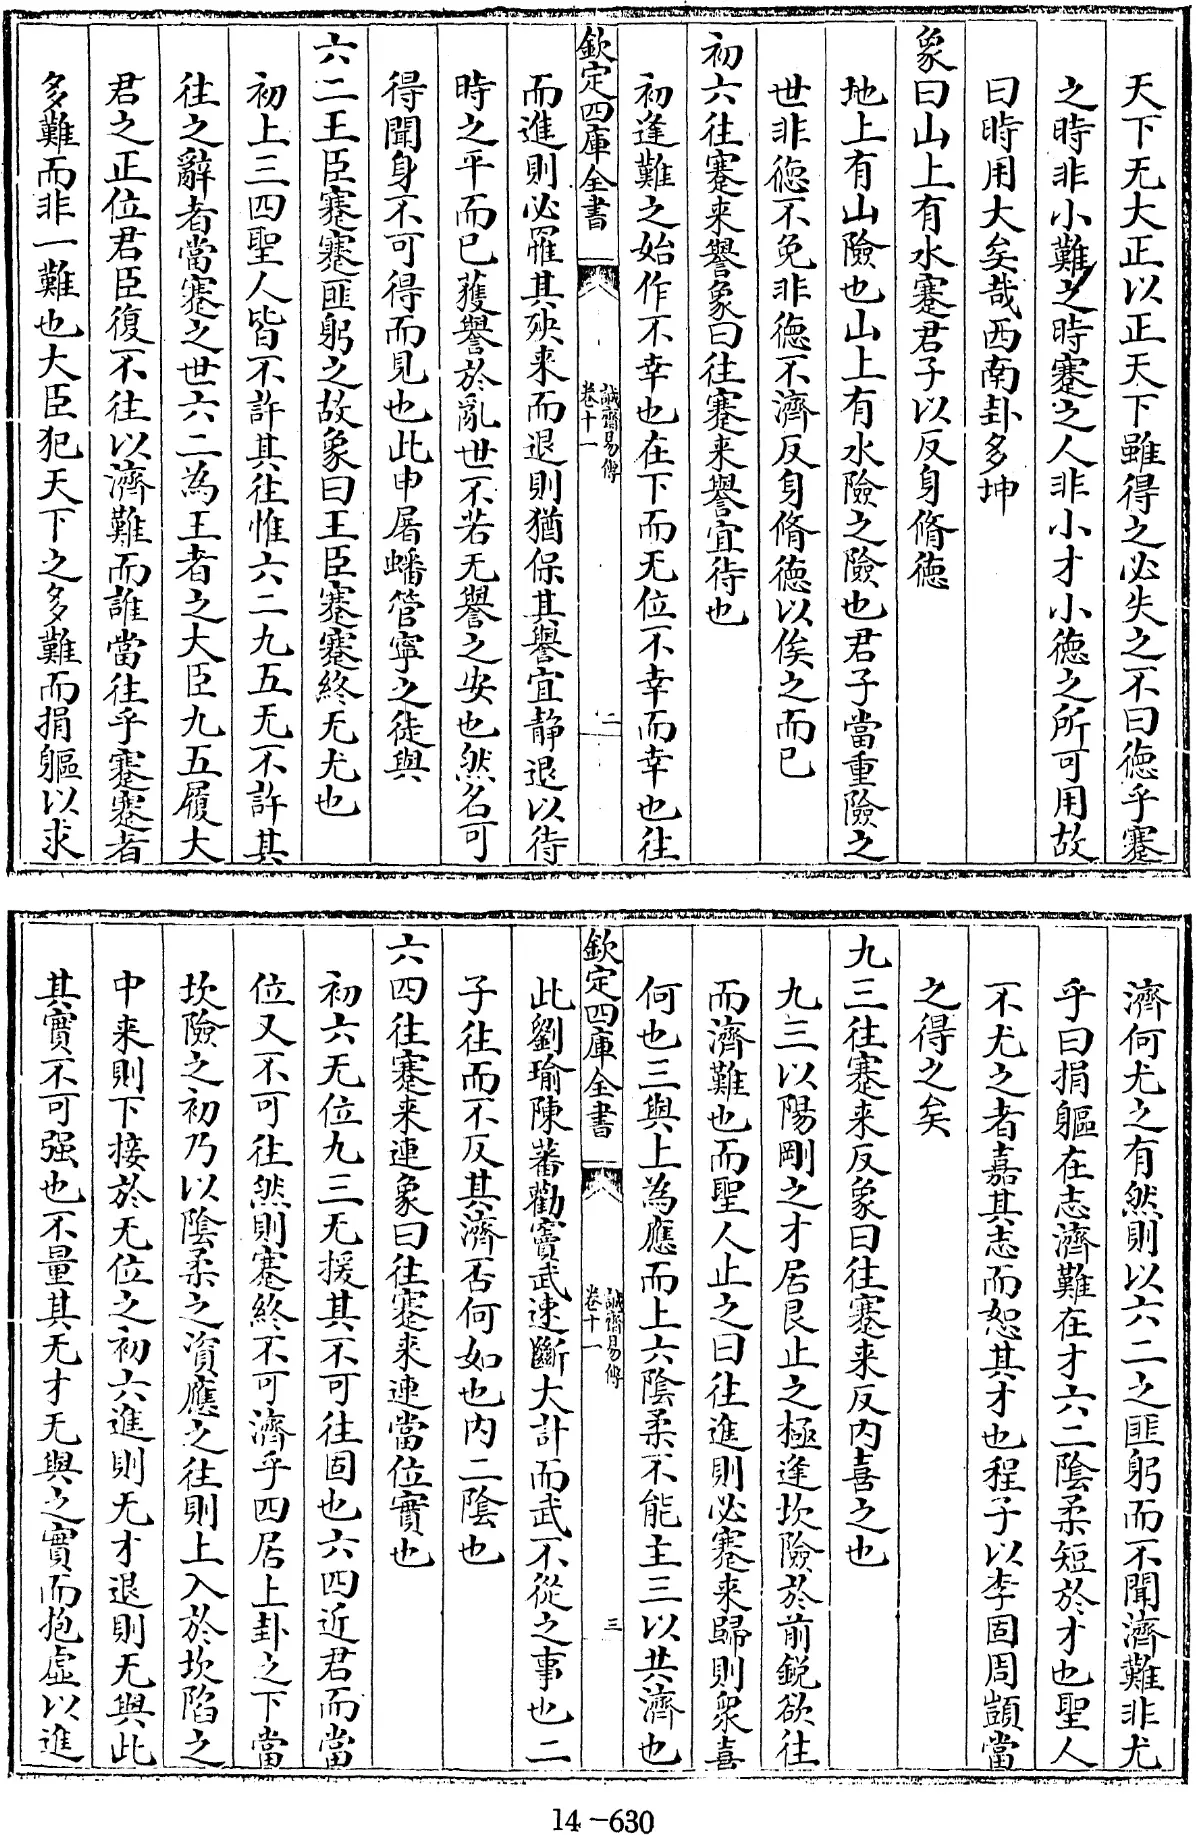 天下无大正以正天下雖得之必失之不曰徳乎蹇
之時非小難之時蹇之人非小才小徳之所可用故
曰時用大矣哉西南卦多坤
象曰山上有水蹇君子以反身脩徳
地上有山險也山上有水險之險也君子當重險之
世非徳不免非徳不濟反身脩徳以俟之而已
初六往蹇来譽象曰往蹇来譽宜待也
初逢難之始作不幸也在下而无位不幸而幸也往
欽定四庫全書
誠齋易傳
卷十一
二
而進則必罹其殃来而退則猶保其譽宜静退以待
時之平而已獲譽於亂世不若无譽之安也然名可
得聞身不可得而見也此申屠蟠管寧之徒與
六二王臣蹇蹇匪躬之故象曰王臣蹇蹇終无尤也
初上三四聖人皆不許其往惟六二九五无不許其
往之辭者當蹇之世六二為王者之大臣九五履大
君之正位君臣復不往以濟難而誰當往乎蹇蹇者
多難而非一難也大臣犯天下之多難而捐軀以求
濟何尤之有然則以六二之匪躬而不聞濟難非尤
乎曰捐軀在志濟難在才六二陰柔短於才也聖人
不尤之者嘉其志而恕其才也程子以李固周顗當
之得之矣
九三往蹇来反象曰往蹇来反内喜之也
九三以陽剛之才居艮止之極逢坎險於前鋭欲往
而濟難也而聖人止之曰往進則必蹇来歸則衆喜
何也三與上為應而上六陰柔不能主三以共濟也
欽定四庫全書
誠齋易傳
卷十一
三
此劉瑜陳蕃勸竇武速斷大計而武不從之事也二
子往而不反其濟否何如也内二陰也
六四往蹇来連象曰往蹇来連當位實也
初六无位九三无援其不可往固也六四近君而當
位又不可往然則蹇終不可濟乎四居上卦之下當
坎險之初乃以陰柔之資應之往則上入於坎陷之
中来則下接於无位之初六進則无才退則无與此
其實不可强也不量其无才无與之實而抱虚以進
14-630